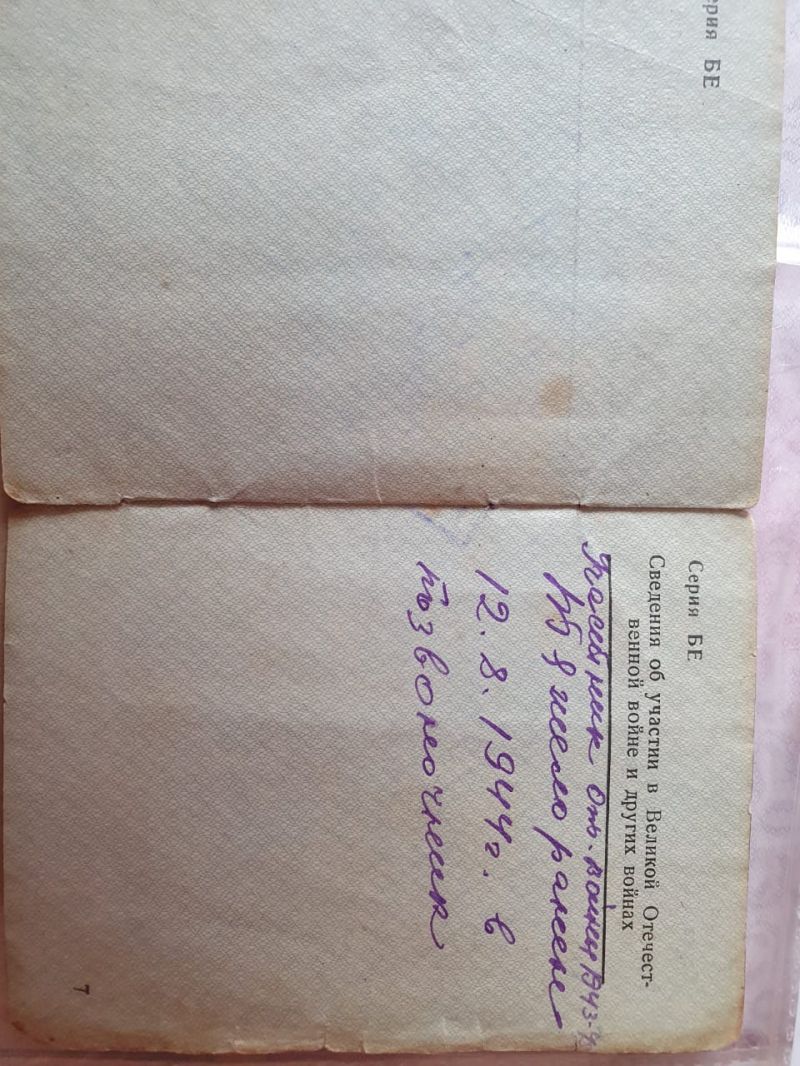 Серия БЕ
Серия БЕ
Сведения об участии в Великой Отечест-
венной войне и других войнах
отв. войны 1943-4
ранен
12. 8. 1944г. в
позвоночник
7